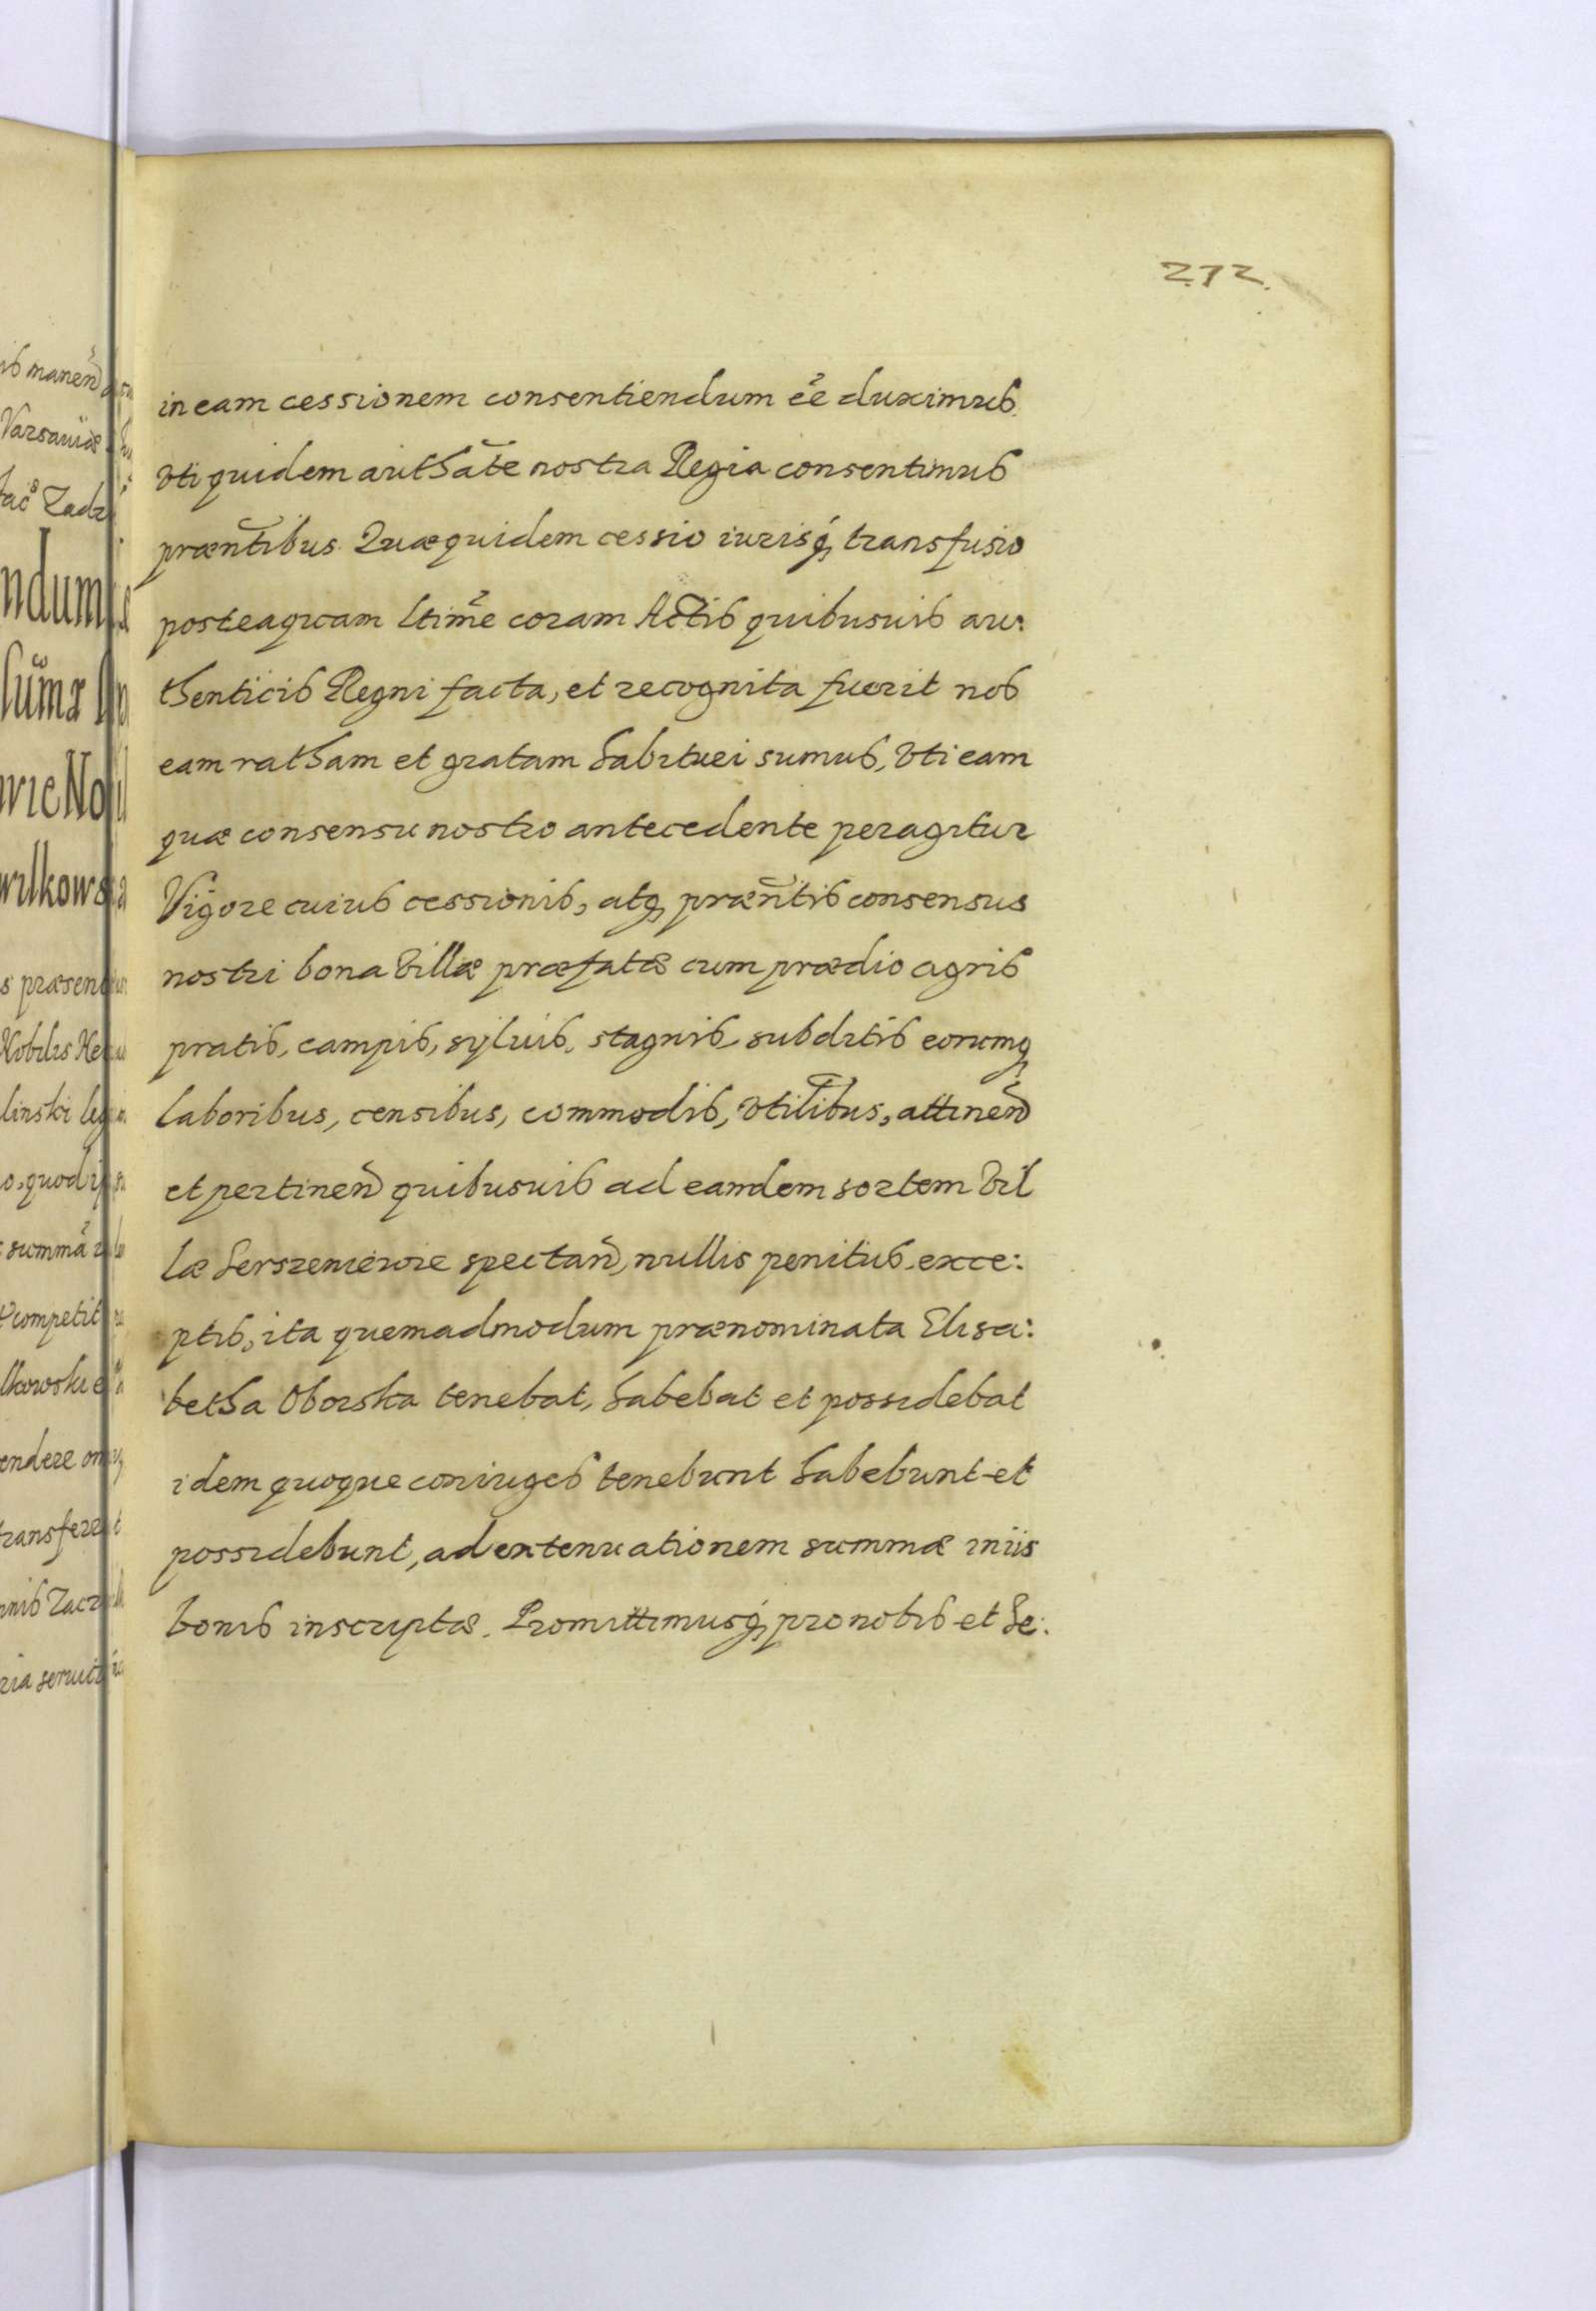 272.
in eam cessionem consentiendum eē duximus.
Vti quidem authāte nostra Regia consentimus
præntibus. Quæ quidem cessio iurisq̨ transfusio
posteaquam Ltime coram Actis quibusuis au:
thenticis Regni facta, et recognita fuerit nos
eam ratham et gratam habituri sumus, Vti eam
quæ consensu nostro antecedente peragitur
Vigore cuius cessionis, atq̨ præntis consensus
nostri bona Villæ præfatæ cum prædio agris
pratis, campis, syluis, stagnis, subditis eorumq̨
laboribus, censibus, commodis, Vtilitbus, attinen̄
et pertinen̄ quibusuis ad eamdem sortem Vil
læ Herszeniewie spectan̄, nullis penitus exce:
ptis, ita quemadmodum prænominata Elisa:
betha Oborska tenebat, habebat et possidebat
idem quoque coniuges tenebunt habebunt et
possidebunt, ad extenuationem summæ in iis
bonis inscriptæ. Promittimusq̨ pro nobis et Se: